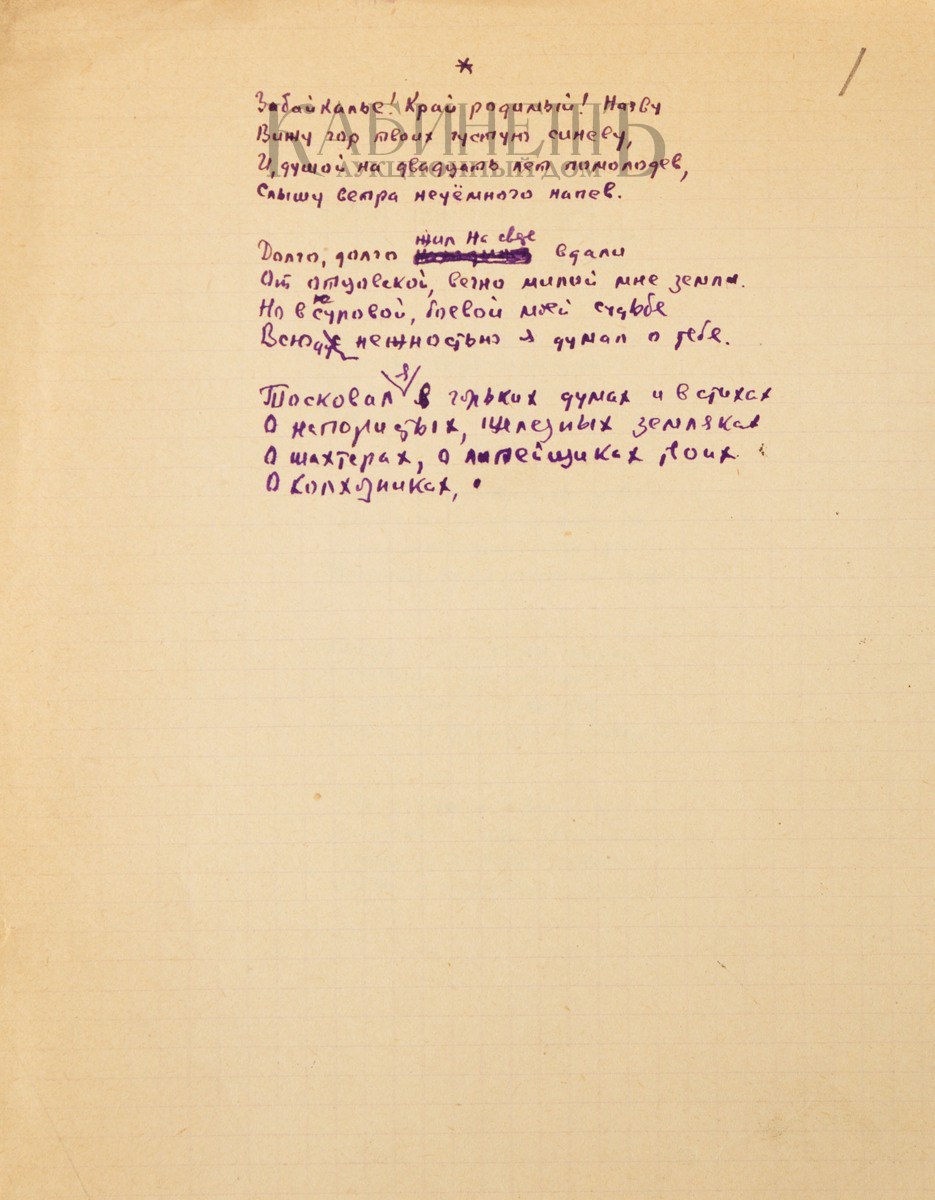 *
/
Забайкалье! Край родимый! Наяву
Вижу гор твоих густую синеву,
И, душой на двадцать лет помолодев,
Слышу ветра неуёмного напев.
жил на
Долго, долго вдали
От отцовской, вечно милой мне земли.
Но в суровой, боевой моей судьбе
Всюду с нежностью я думал о тебе.
я
Тосковал в горьких думах и в стихах
О напористых, железных земляках
О шахтерах, о литейщиках твоих
О колхозниках,
КАБИНЕТЪ
АУКЦИОННЫЙ ДОМ